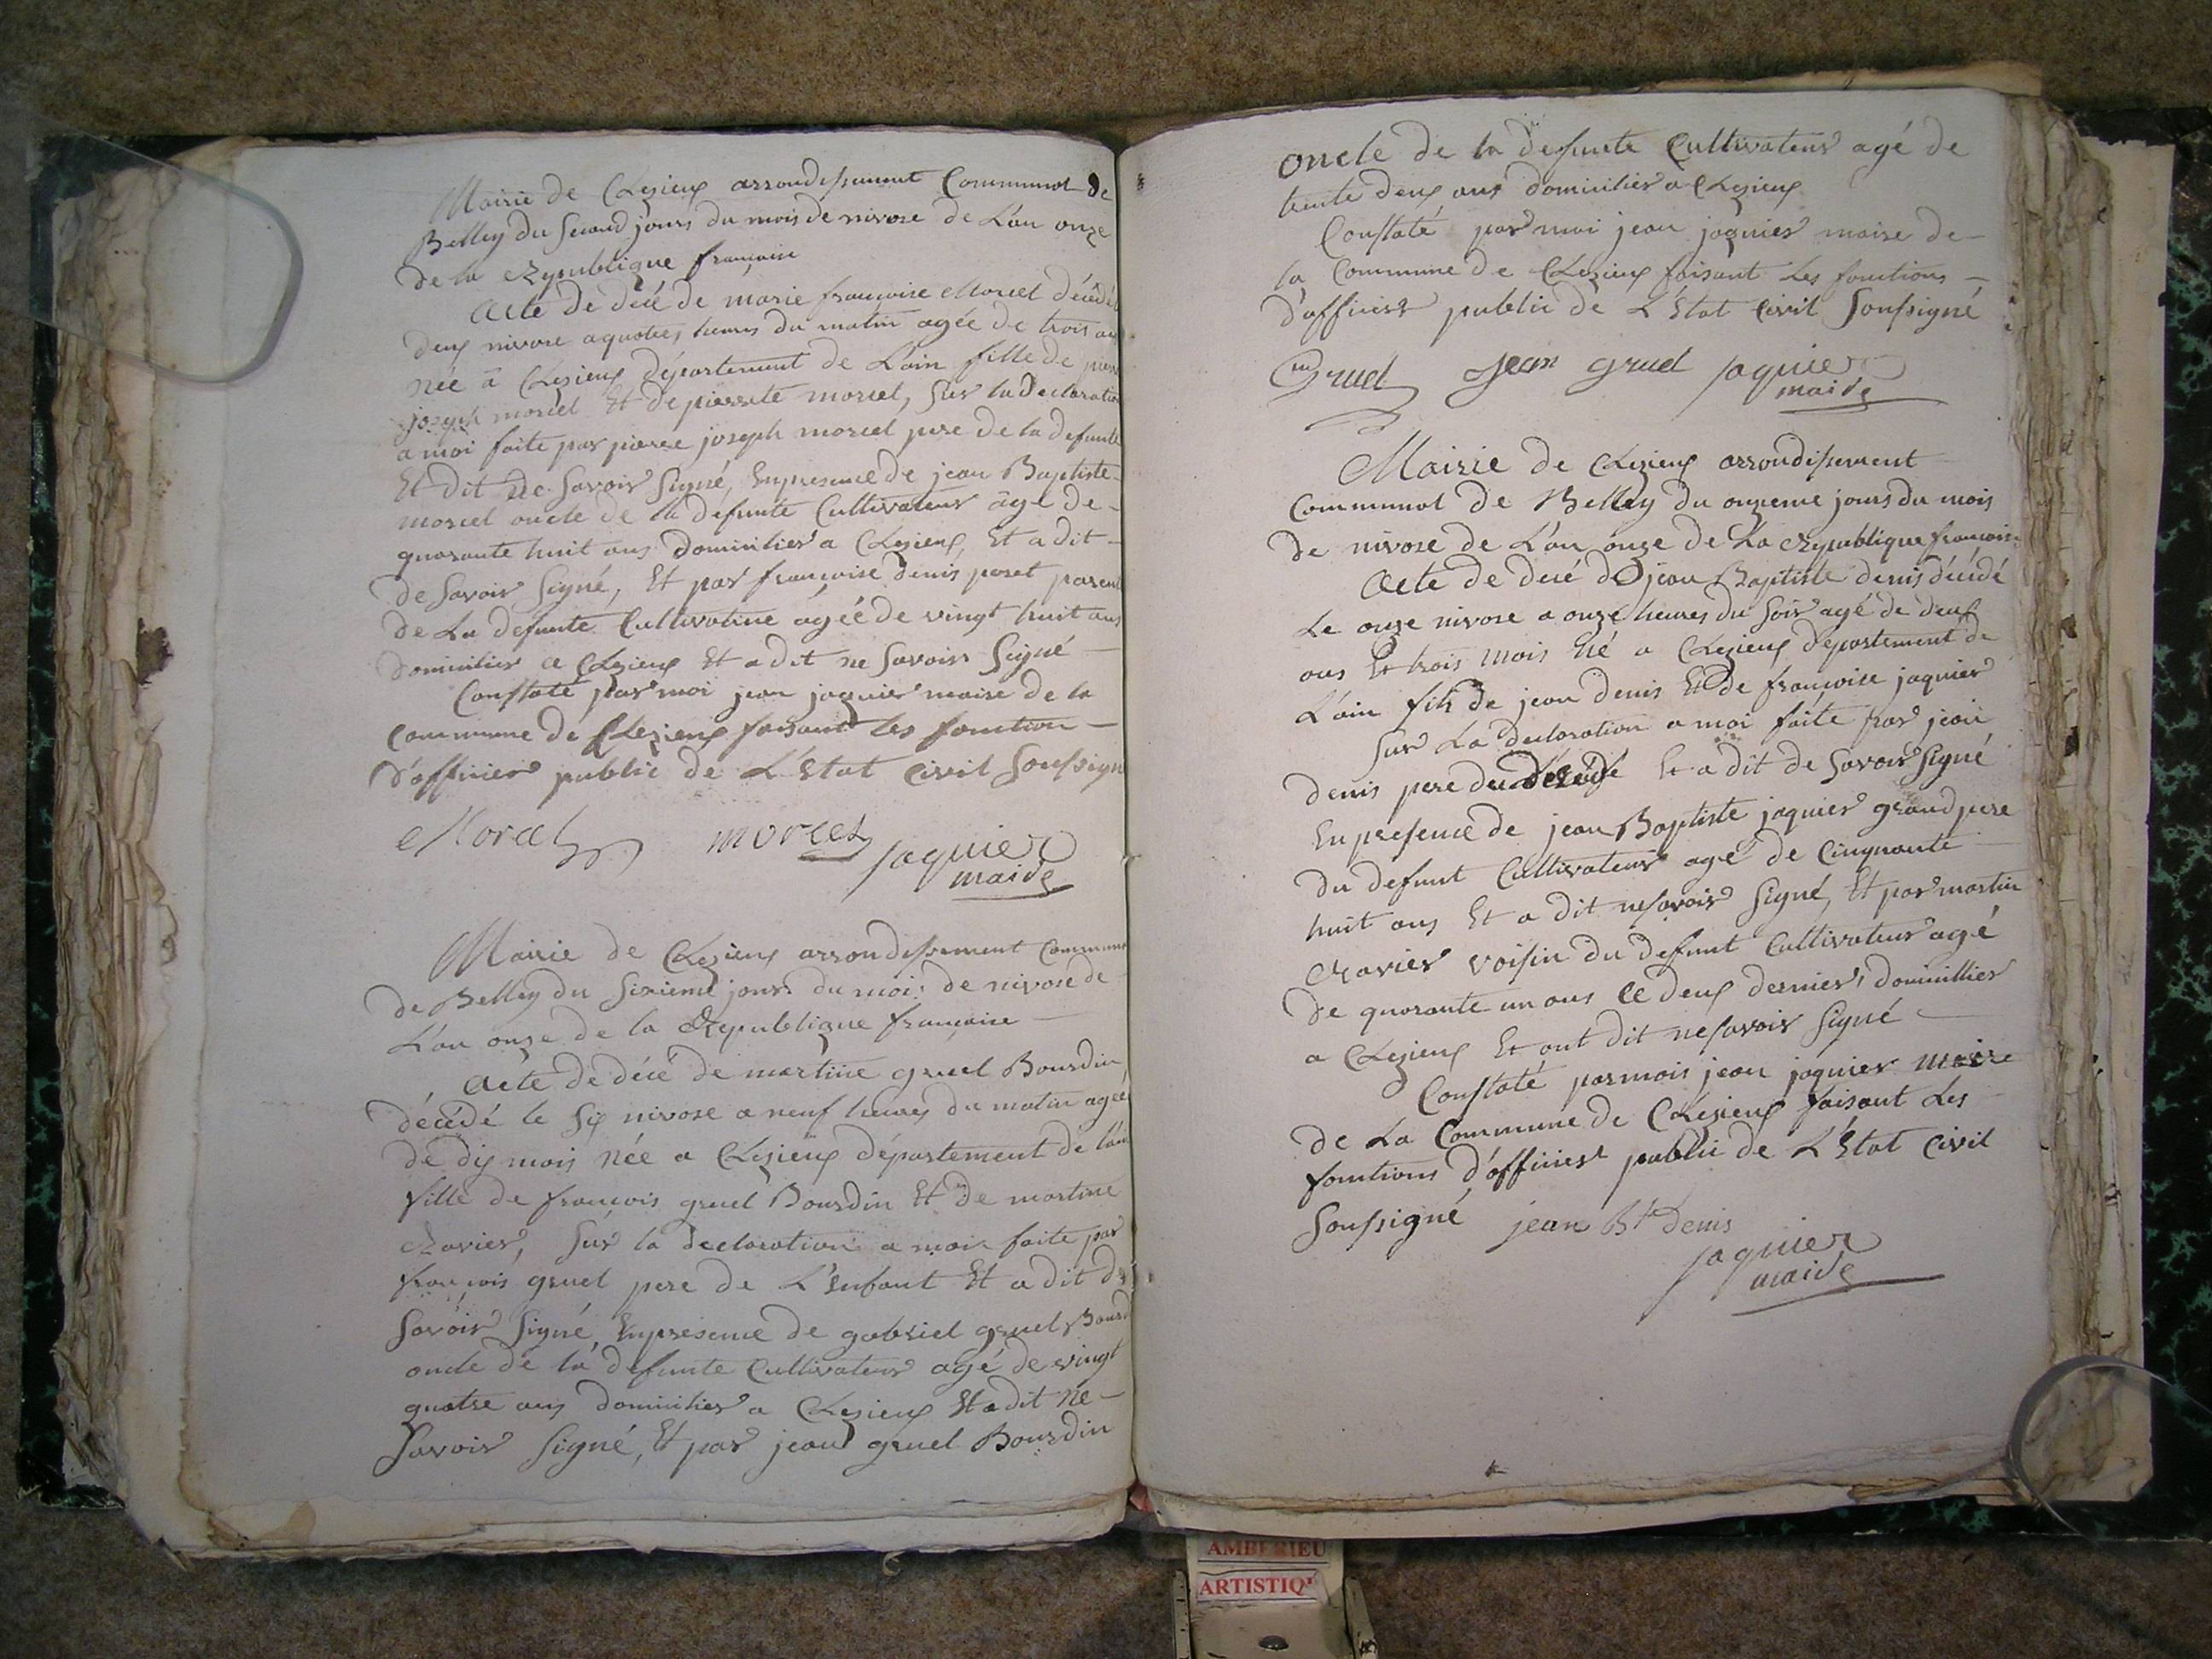 Mairie de Clezieux arrondissement Communal de
Belley du second jours du mois de nivose de L'an onze
de la Republique françaisse
Acte de décé de marie françoise Morcel décédé
deux nivose a quatres heures du matin agée de trois an
née a Clezieux département de L'ain fille de pierre
joseph morcel Et de pierrete morcel, sur la declaration
a moi faite par pierre joseph morcel pere de la defunte
Et dit de savoir signé, En presence de jean Baptiste
morcel oncle de la defunte Cultivateur age de
quarante huit ans domicilier a Clezieux, Et a dit
de savoir signé, Et par françoise denis poset parent
de La defunte Cultivatrine agéé de vingt huit ans
domicilier a Clezieux Et a dit ne savoir signé
Constaté par moi jean jaquier maire de la
Commune de Clezieux faisant les fonction
d'afficier public de L'Etat Civil soussign
Morcel morcel jaquier
maire
Mairie de Clezieux arrondissement Commun
de Belley du sixieme jours du mois de nivose de
L'an onze de la Republique française
Acte de décé de martine gruel Bourdin
décédé le six nivose a neuf heures du matin agée
de dix mois née a Clezieux département de l'ain
fille de françois gruel Bourdin Et de martine
Ravier, sur la declaration a moi faite par
françois gruel pere de L'enfant Et a dit de
savoir signé, En presence de gabriel gruel Bourd
oncle de la defunte Cultivateur agé de vingt
quatre ans domicilier a Clezieux Et a dit ne
savoir signé, Et par jean gruel Bourdin
oncle de la defunte Cultivateur agé de
trente deux ans domicilier a Clezieux
Constaté par moi jean jaquier maire de
la Commune de Clezieux faisant Les fonctions
d'afficier public de L'Etat Civil soussigné
Gruel jean gruel jaquier
maire
Mairie de Clezieux arrondissement
Communal de Belley du onzieme jours du mois
de nivose de L'an onze de La Republique françois
Acte de décé de jean Baptiste denis décédé
Le onze nivose a onze heures du soir agé de deux
ans Et trois mois né a Clezieux département de
L'ain fils de jean denis Et de françoise jaquier
sur La declaration a moi faite par jean
denis pere du décédé Et a dit de savoir signé
En presence de jean Baptiste jaquier grand pere
du defunt Cultivateur agé de Cinquante
huit ans Et a dit ne savoir signé, Et par martin
Ravier voisin du defunt Cultivateur agé
de quarante un ans Ce deux derniers domicillier
a Clezieux Et ont dit ne savoir signé
Constaté par mois jean jaquier maire
de La Commune de Clezieux faisant Les
fonctions d'afficier public de L'Etat Civil
soussigné jean Bte denis
jaquier
maire
AMBERIEU
ARTISTIQ